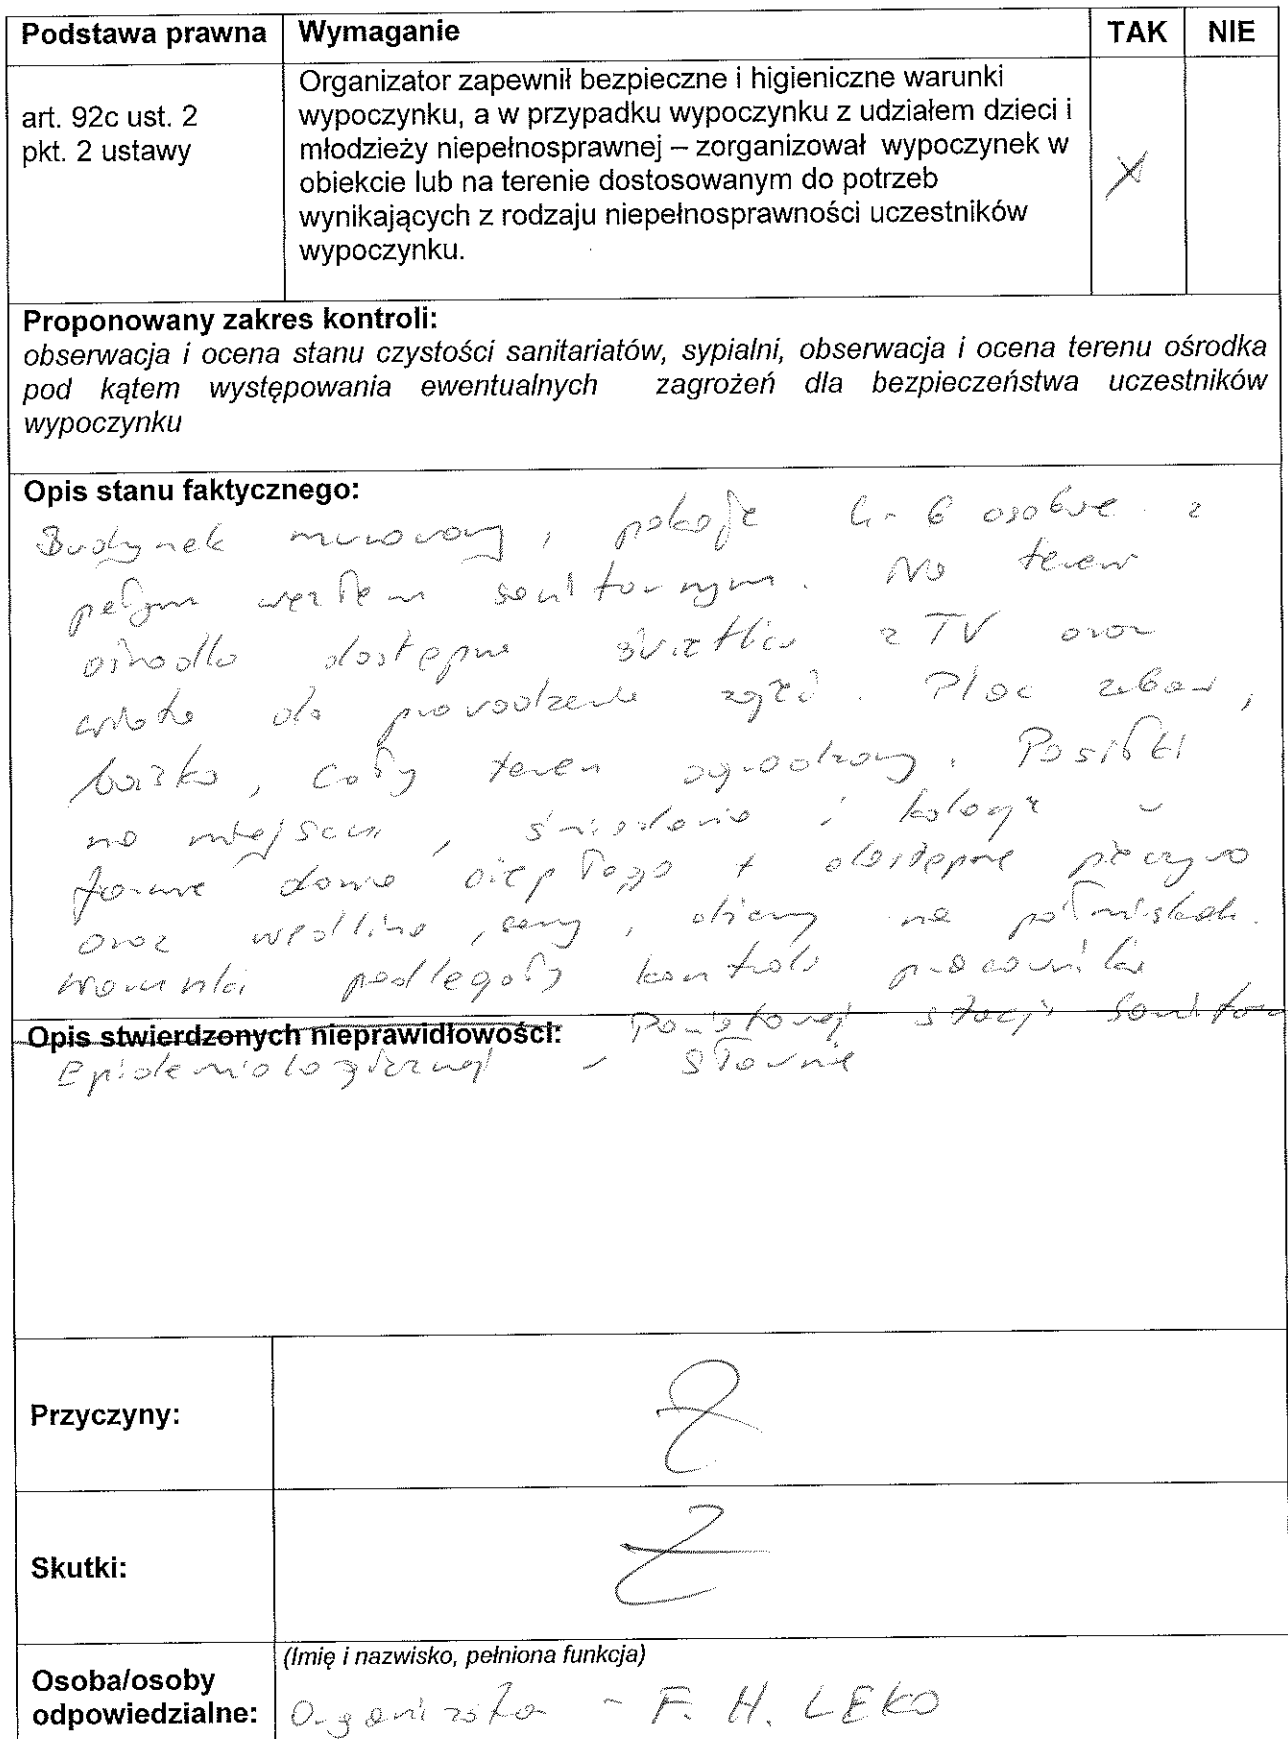 Podstawa prawna Wymaganie TAK NIE
art. 92c ust. 2
pkt. 2 ustawy
Organizator zapewnił bezpieczne i higieniczne warunki
wypoczynku, a w przypadku wypoczynku z udziałem dzieci i
młodzieży niepełnosprawnej – zorganizował wypoczynek w
obiekcie lub na terenie dostosowanym do potrzeb
wynikających z rodzaju niepełnosprawności uczestników
wypoczynku.
X
Proponowany zakres kontroli:
obserwacja i ocena stanu czystości sanitariatów, sypialni, obserwacja i ocena terenu ośrodka
pod kątem występowania ewentualnych zagrożeń dla bezpieczeństwa uczestników
wypoczynku
Opis stanu faktycznego:
Budynek murowany, pokoje 4-6 osobowe z
pełnym węzłem sanitarnym. Na terenie
ośrodka dostępne świetlica z TV oraz
do prowadzenia zajęć. Plac zabaw,
boisko, cały teren ogrodzony. Posiłki
na miejscu, śniadanie i kolacje w
formie dania ciepłego + dostępne pieczywo
oraz wędlina, sery, dżemy na półmiskach.
Warunki podlegały kontroli pracownika
Powiatowej Stacji Sanitarno
Opis stwierdzonych nieprawidłowości:
Epidemiologicznej w Sławnie
Przyczyny:
Skutki:
Osoba/osoby
odpowiedzialne:
(Imię i nazwisko, pełniona funkcja)
Organizator - F. H. LEKO